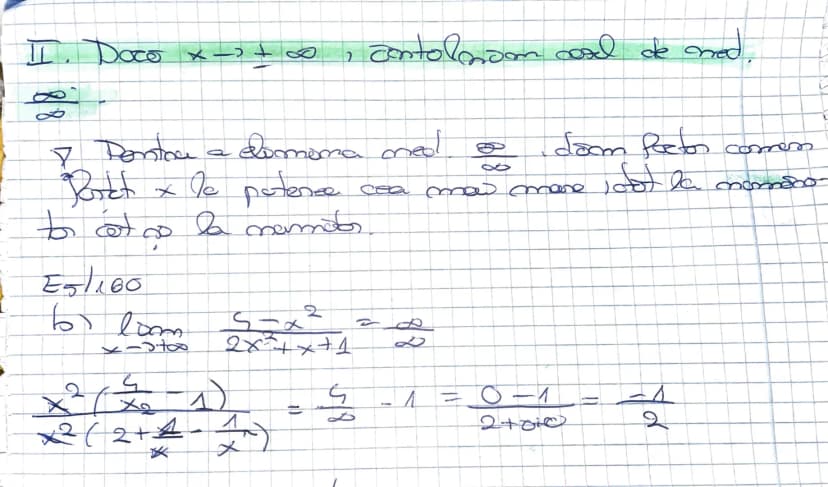 II. Dacă x → ± ∞, întâlnim cazul de ned.
∞/∞.
∇ Pentru a elimina ned. ∞/∞, dăm factor comun
forțat x la puterea cea mai mare, atât la numără-
tor cât și la numitor.
E5/160
b) lim x→+∞ (5-x²)/(2x²+x+1) = ∞/∞
x²(5/x² - 1) / x²(2 + 1/x - 1/x²) = 5/∞ - 1 = (0-1)/(2+0+0) = -1/2